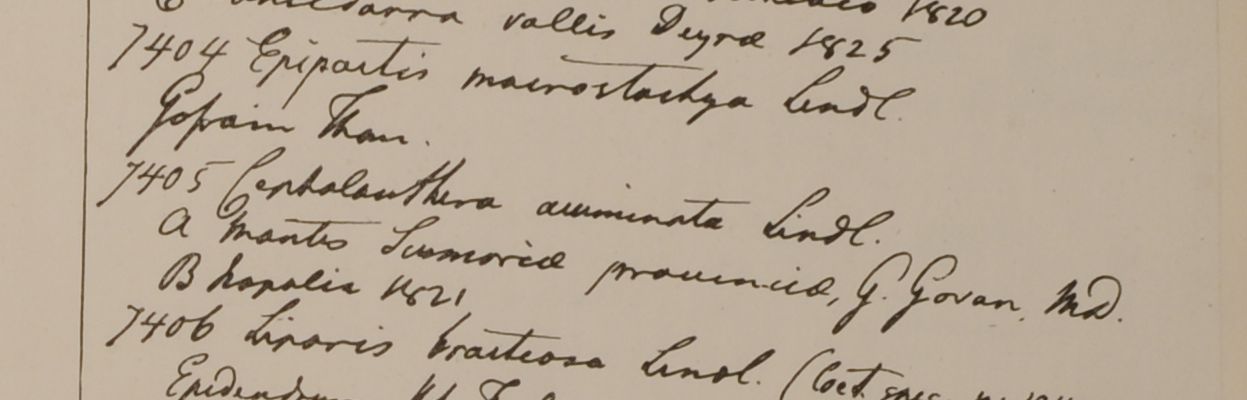 1820
vallis Deyræ 1825
7404 Epipactis macrostachya Lindl.
Gosain Than.
7405 Cephalanthera acuminata Lindl.
A Montis Sirmoriæ provinciæ, G. Govan, MD.
B Napalia 1821
7406 Liparis bracteosa Lindl. (Cat.